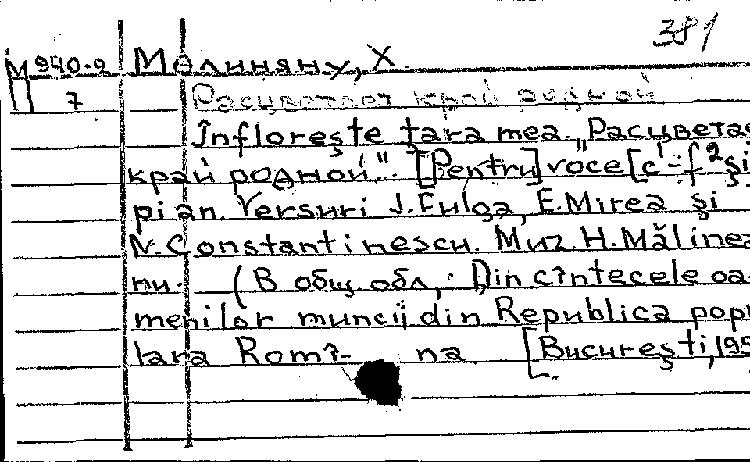 381
М 940-9 Мэлиняну, Х.
П 7 Расцветает край родной
Înfloreşte ţara mea. „Расцветае
край родной". [Pentru] voce [c¹-f² şi
pian. Versuri J. Fulga, E. Mirea şi
N. Constantinescu. Muz. H. Mălinea
nu. (В общ. обл.: Din cîntecele oa-
menilor muncii din Republica popu
lara Romî- na [Bucureşti, 195